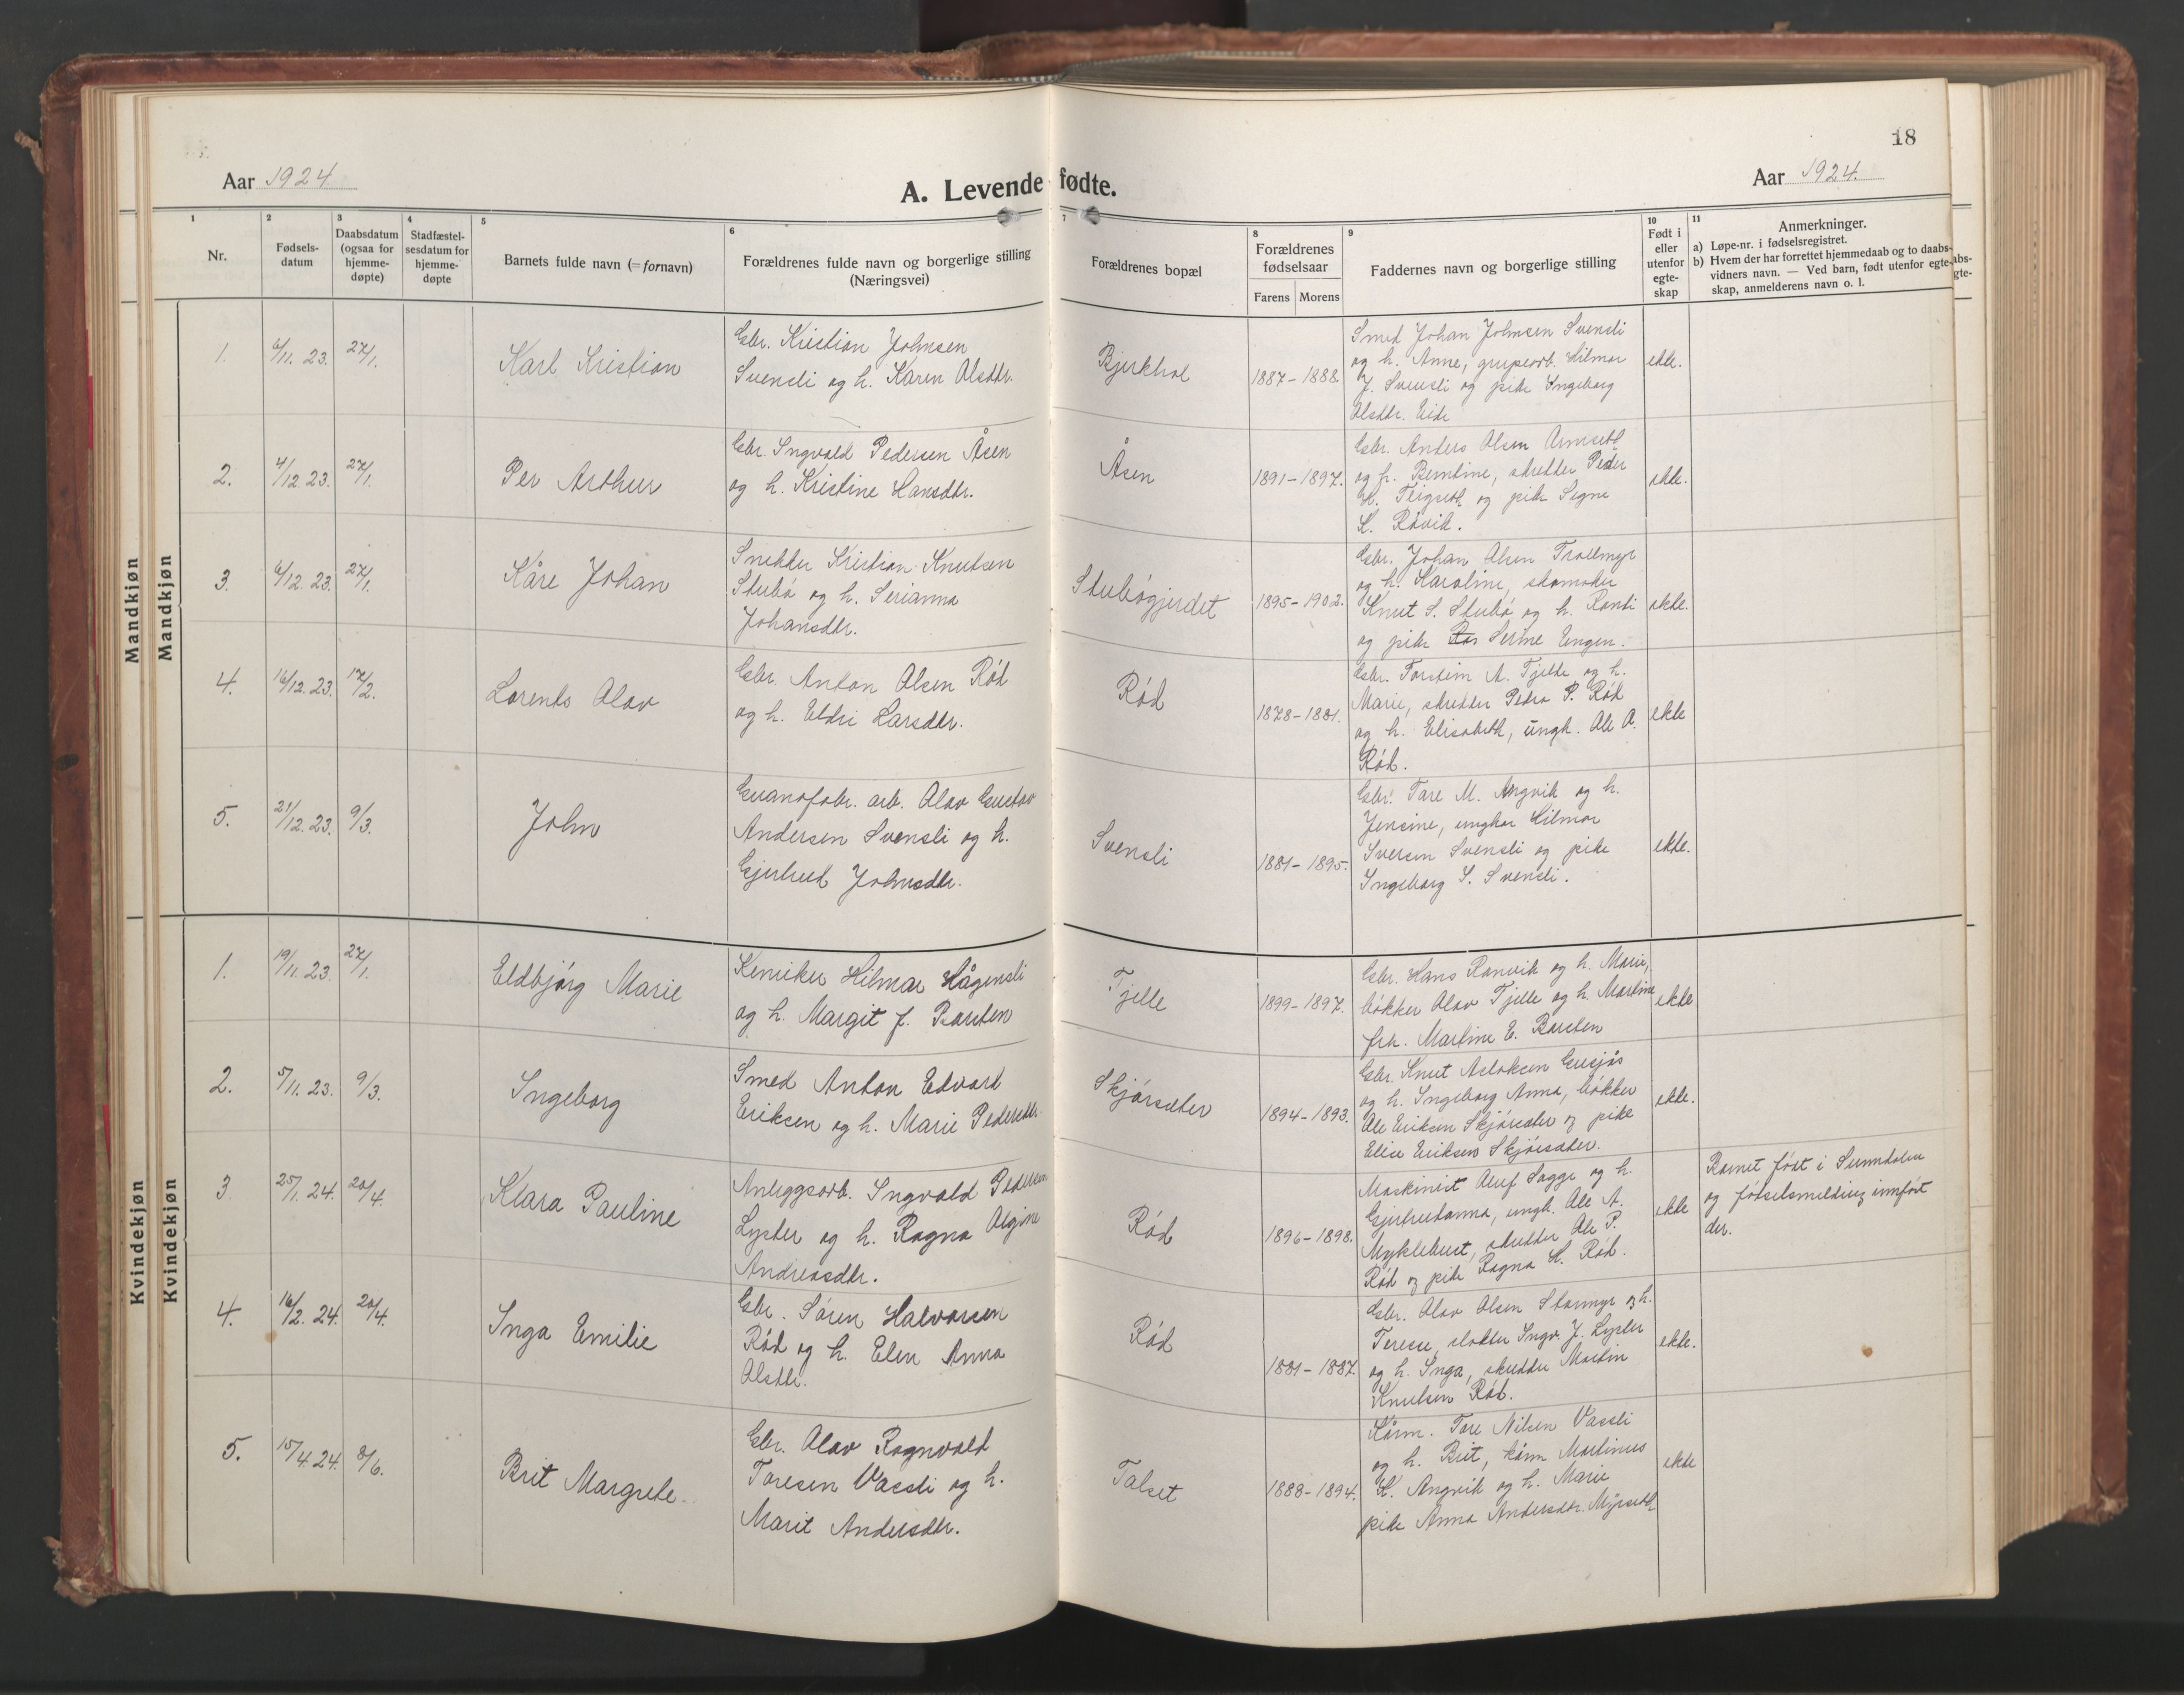 18
Aar 1924
A. Levende fødte.
Aar 1924.
1 2 3 4 5 6 7 8 9 10 11
Nr.
Fødsels-
datum
Daabsdatum
(ogsaa for
hjemme-
døpte)
Stadfæstel-
sesdatum for
hjemme-
døpte
Barnets fulde navn (=fornavn)
Forældrenes fulde navn og borgerlige stilling
(Næringsvei)
Forældrenes bopæl
Forældrenes
fødselsaar
Farens Morens
Faddernes navn og borgerlige stilling
Født i
eller
utenfor
egte-
skap
Anmerkninger.
a) Løpe-nr. i fødselsregistret.
b) Hvem der har forrettet hjemmedaab og to daabs-
vidners navn. — Ved barn, født utenfor egte-
skap, anmelderens navn o. l.
abs-
gte-
Mandkjøn
Mandkjøn
1.
6/11. 23.
27/1.
Karl Kristian
Gbr. Kristian Johnsen
Svensli og h. Karen Olsdtr.
Bjerkhol
1887-1888.
Smed Johan Johnsen Svensli
og h. Anne, grubearb. Hilmar
J. Svensli og pike Ingeborg
Olsdtr. Eide
ekte.
2.
4/12. 23.
27/1.
Per Arthur
Gbr. Ingvald Pedersen Åsen
og h. Kristine Hansdtr.
Åsen
1891-1897.
Gbr. Anders Olsen
og h. Berntine, skredder Peder
og pike Signe
K. Røvik.
ekte.
3.
6/12. 23.
27/1.
Kåre Johan
Snekker Kristian Knutsen
Stubø og h. Serianna
Johansdtr.
Stubøgjerdet
1895-1902.
Gbr. Johan Olsen Trollmyr
og h. Karoline, skomaker
Knut S. Stubø og h. Ranti
og pike Serine Engen.
ekte.
4.
16/12. 23.
17/2.
Lorents Olav
Gbr. Anton Olsen Rød
og h. Eldri Larsdtr.
Rød
1878-1881.
Gbr. Torstein A. Tjelle og h.
Marie, skredder Peder P. Rød
og h. Elisabeth, ungk. Ole A.
Rød.
ekte
5.
21/12. 23.
9/3.
John
Guanofabr. arb. Olav Gustav
Andersen Svensli og h.
Gjertrud Johnsdtr.
Svensli
1881-1895.
Gbr. Tore M. Angvik og h.
Jensine, ungkar Hilmar
Iversen Svensli og pike
Ingeborg I. Svensli.
ekte.
Kvindekjøn
Kvindekjøn
1.
19/11. 23.
27/1.
Eldbjørg Marie
Kemiker Hilmar Hågensli
og h. Margit f. Bausten
Tjelle
1899-1897.
Gbr. Hans Ranvik og h. Marie,
bøkker Olav Tjelle og h. Martine
frk. Martine E.
ekte
2.
5/11. 23.
9/3.
Ingeborg
Smed Anton Edvart
Eriksen og h. Marie Pedersdtr.
Skjørsæter
1894-1893.
Gbr. Knut Aslaksen Gusjås
og h. Ingeborg Anna, bøkker
Ole Eriksen Skjørsæter og pike
Elise Eriksen Skjørsæter.
ekte.
3.
25/1. 24.
20/4.
Klara Pauline
Anleggsarb. Ingvald Pedersen
Lyster og h. Ragna Olgine
Andreasdtr.
Rød
1896-1898.
Maskinist Oluf Sagge og h.
Gjertrudanna, ungk. Ole A.
Myklebust, skredder Ole P.
Rød og pike Ragna H. Rød.
ekte
Barnet født i Sunndalen
og fødselsmelding innført
der.
4.
16/2. 24.
20/4.
Inga Emilie
Gbr. Søren Halvorsen
Rød og h. Elen Anna
Olsdtr.
Rød
1881-1887.
Gbr. Olav Olsen Stormyr og h.
Terese, slakter Ingv. J. Lyster
og h. Inga, skredder Martin
Knutsen Rød.
ekte.
5.
15/4. 24.
8/6.
Brit Margrete
Gbr. Olav Ragnvald
Toresen Vassli og h.
Marit Andersdtr.
Talset
1888-1894.
Kårm. Tore Nilsen Vassli
og h. Brit, kårm Martinus
K. Angvik og h. Marie
pike Anna Andersdtr. Myrseth
ekte